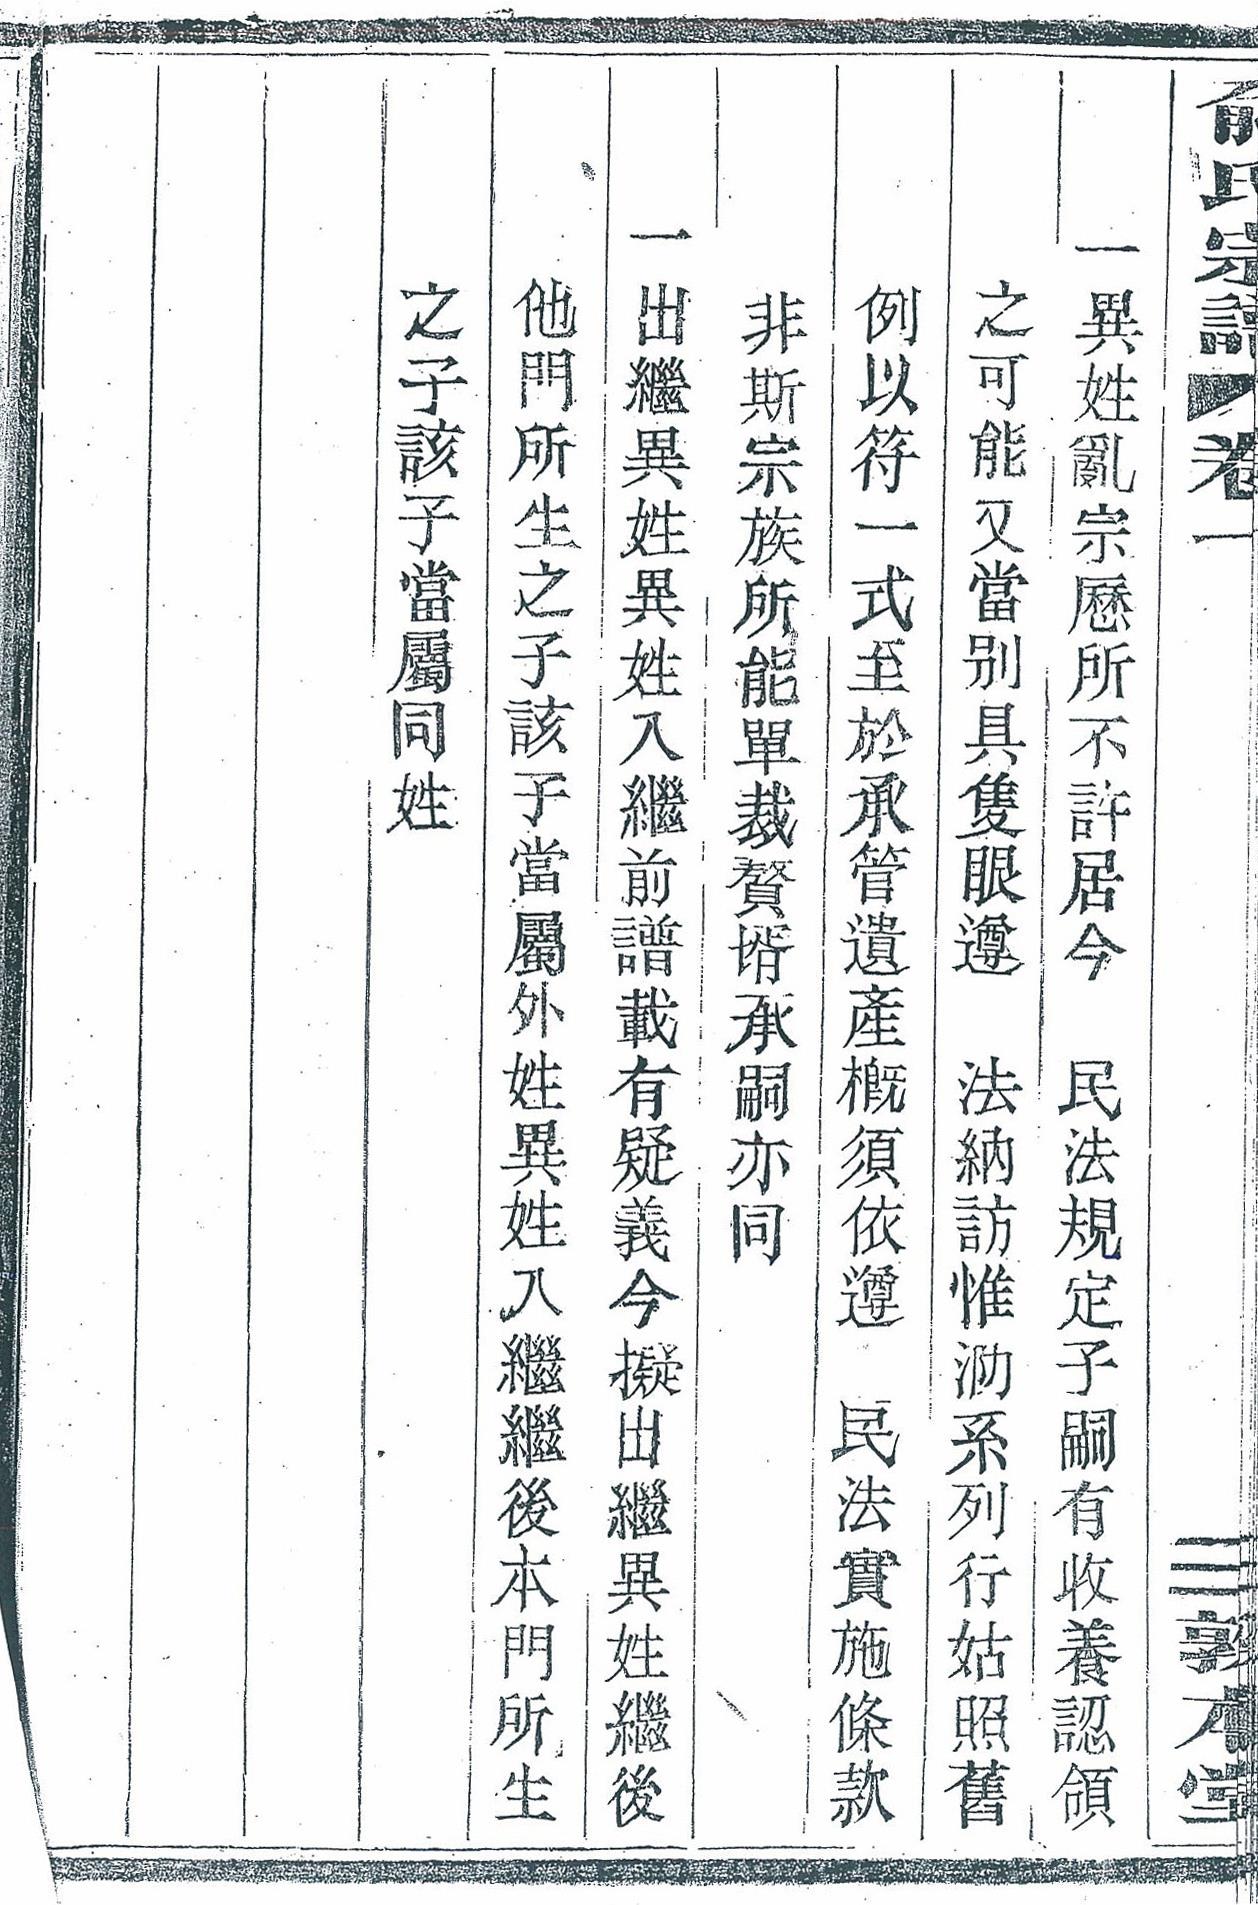 俞氏宗譜 卷一 三 敦本堂
一異姓亂宗歷所不許居今 民法規定子嗣有收養認領
之可能又當別具隻眼遵 法納訪惟泐系列行姑照舊
例以符一式至於承管遺產概須依遵 民法實施條款
非斯宗族所能單裁贅壻承嗣亦同
一出繼異姓異姓入繼前譜載有疑義今擬出繼異姓繼後
他門所生之子該子當屬外姓異姓入繼繼後本門所生
之子該子當屬同姓